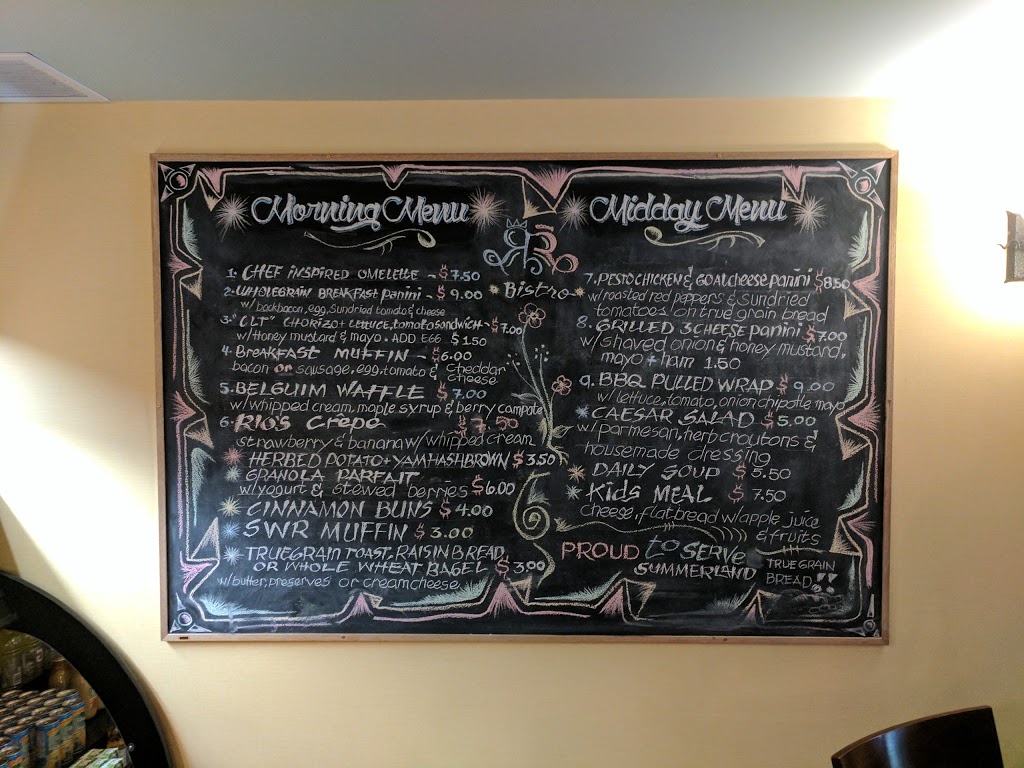 Morning Menu
1. CHEF INSPIRED OMELETTE - $7.50
2. WHOLEGRAIN BREAKFAST panini - $9.00
w/backbacon, egg, Sundried tomato & cheese
3. "CLT" CHORIZO + LETTUCE, tomato sandwich - $7.00
w/Honey mustard & mayo. ADD EGG $1.50
4. Breakfast MUFFIN - $6.00
bacon or sausage, egg, tomato & cheddar cheese
5. BELGUIM WAFFLE $7.00
w/whipped cream, maple syrup & berry compote
6. RIO'S Crêpe $7.50
strawberry & banana w/whipped cream
HERBED POTATO + YAM HASHBROWN $3.50
GRANOLA PARFAIT
w/yogurt & stewed berries - $6.00
CINNAMON BUNS $4.00
SWR MUFFIN $3.00
TRUEGRAIN TOAST, RAISIN BREAD
OR WHOLE WHEAT BAGEL $3.00
w/butter, preserves or creamcheese
Bistro
Midday Menu
7. PESTO CHICKEN & GOAT cheese panini $8.50
w/roasted red peppers & sundried
tomatoes on true grain bread
8. GRILLED 3 CHEESE panini $7.00
w/shaved onion & honey mustard,
mayo + ham 1.50
9. BBQ PULLED WRAP $9.00
w/lettuce, tomato, onion chipotle mayo
CAESAR SALAD $5.00
w/parmesan, herb croutons &
housemade dressing
DAILY SOUP $5.50
Kids MEAL $7.50
cheese, flatbread w/apple juice
& fruits
PROUD to SERVE
SUMMERLAND
TRUEGRAIN
BREAD!!